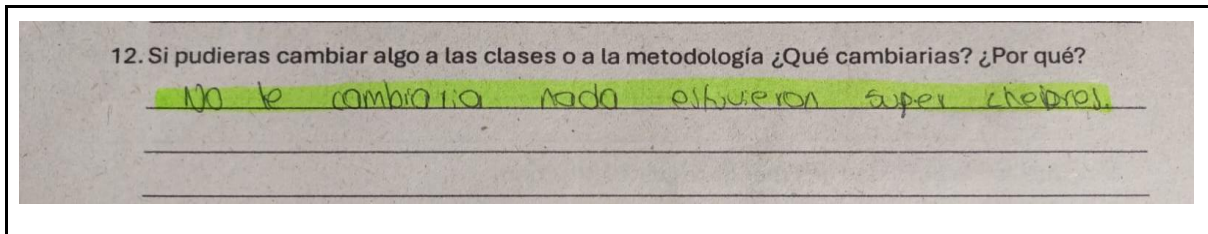 12. Si pudieras cambiar algo a las clases o a la metodología ¿Qué cambiarias? ¿Por qué?
No le cambiaria nada estuvieron super cheipres.